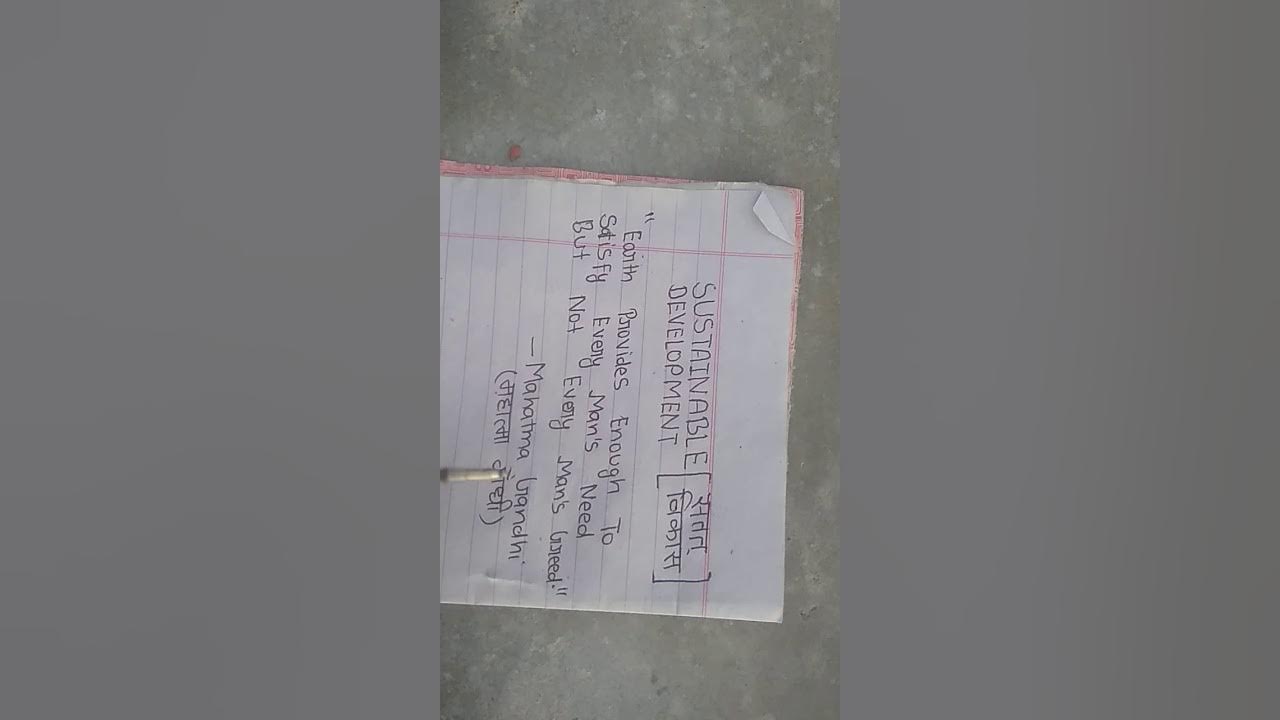 SUSTAINABLE [सतत्
DEVELOPMENT [विकास]
"Earth Provides Enough To
Satisfy Every Man's Need
But Not Every Man's Greed."
– Mahatma Gandhi
(महात्मा गाँधी)